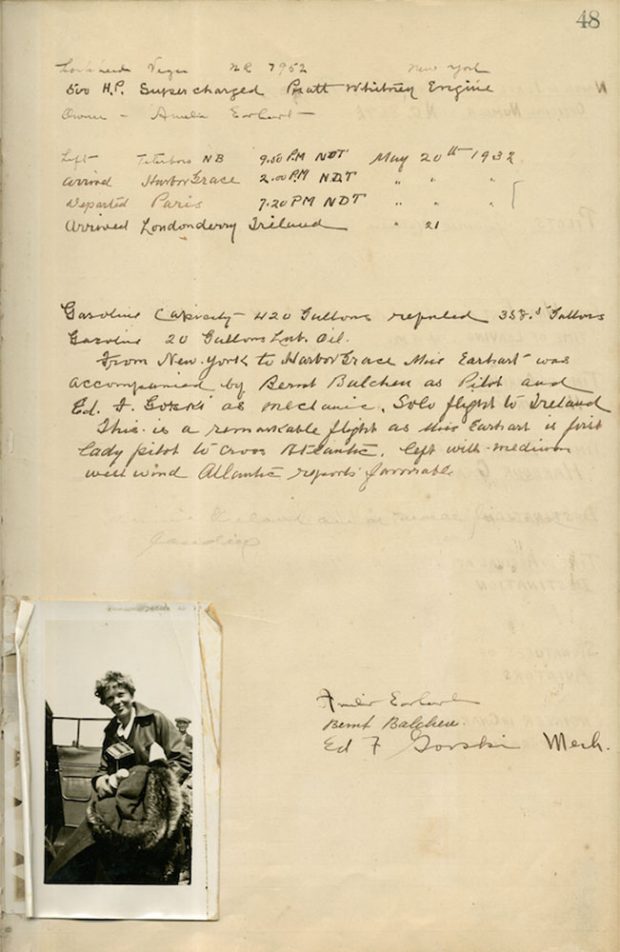 48
Lockheed Vega NR 7952 New York
500 H.P. Supercharged Pratt Whitney Engine
Owner - Amelia Earhart -
Left Teterboro NB 9.50 PM NDT May 20th 1932
Arrived Harbor Grace 2.00 PM NDT " " "
Departed Paris 7.20 PM NDT " " "
Arrived Londonderry Ireland " 21
Gasoline Capacity 420 Gallons refueled 358.5 Gallons
Gasoline 20 Gallons Lub. Oil.
From New York to Harbor Grace Miss Earhart was
accompanied by Bernt Balchen as Pilot and
Ed. F. Gorski as mechanic. Solo flight to Ireland
This is a remarkable flight as Miss Earhart is first
lady pilot to cross Atlantic. left with medium
west wind Atlantic reports favorable
Ireland
landing
Amelia Earhart
Bernt Balchen
Ed F Gorski Mech.